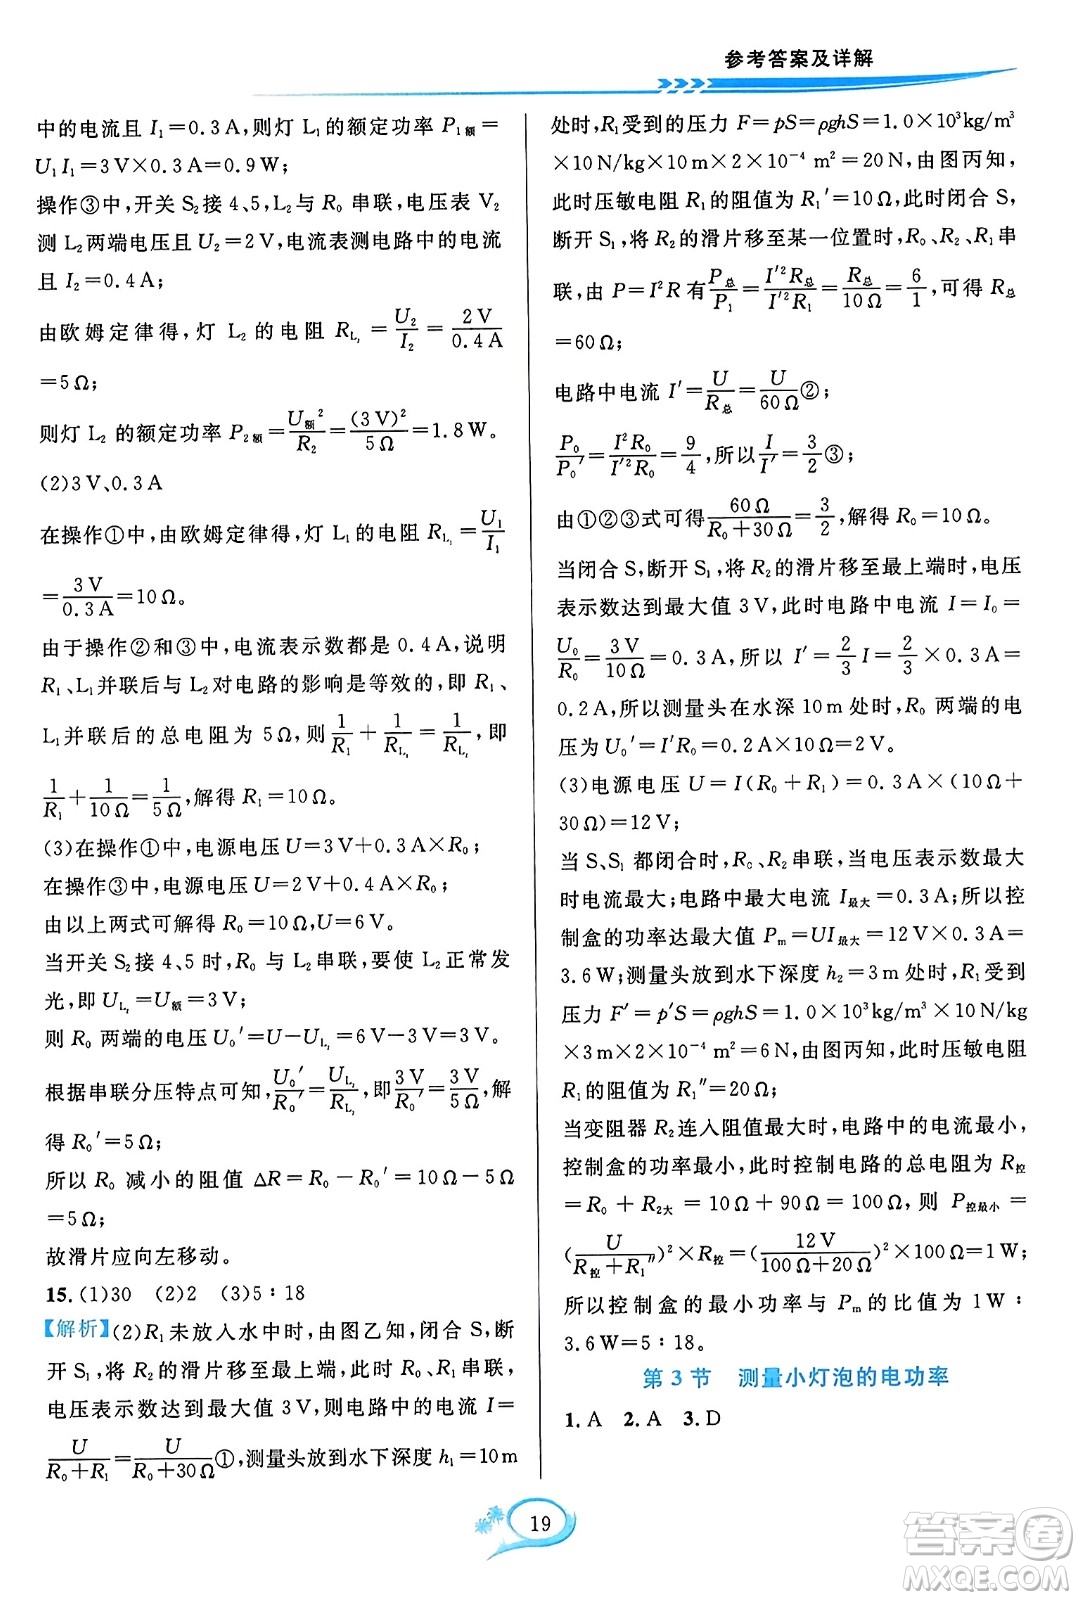 参考答案及详解
中的电流且 I₁=0.3A,则灯 L₁的额定功率 P₁额=
U₁I₁=3V×0.3A=0.9W。
操作③中,开关 S₂接 4、5,L₂与 R₀ 串联,电压表 V₂
测 L₂两端电压且 U₂=2V,电流表测电路中的电流
且 I₂=0.4A;
由欧姆定律得,灯 L₂ 的电阻 R_L₂=U₂/I₂=2V/0.4A
=5Ω;
则灯 L₂ 的额定功率 P₂额=U额²/R₂=(3V)²/5Ω=1.8W。
(2)3V、0.3A
在操作①中,由欧姆定律得,灯 L₁的电阻 R_L₁=U₁/I₁
=3V/0.3A=10Ω。
由于操作②和③中,电流表示数都是 0.4A,说明
R₁、L₁并联后与 L₂对电路的影响是等效的,即 R₁、
L₁并联后的总电阻为 5Ω:1/R₁+1/R_L₁=1/R_L₂,即
1/R₁+1/10Ω=1/5Ω,解得 R₁=10Ω。
(3)在操作①中,电源电压 U=3V+0.3A×R₀;
在操作③中,电源电压 U=2V+0.4A×R₀;
由以上两式可解得 R₀=10Ω,U=6V。
当开关 S₂ 接 4、5 时,R₀ 与 L₂ 串联,要使 L₂ 正常发
光,即 U_L₂=U额=3V;
则 R₀ 两端的电压 U₀′=U−U_L₂=6V−3V=3V,
根据串联分压特点可知,U₀′/R₀′=U_L₂/R_L₂,即3V/R₀′=3V/5Ω,解
得 R₀′=5Ω;
所以 R₀ 减小的阻值 △R=R₀−R₀′=10Ω−5Ω
=5Ω;
故滑片应向左移动。
15.(1)30 (2)2 (3)5∶18
【解析】(2)R₁未放入水中时,由图乙知,闭合 S,断
开 S₁,将 R₂的滑片移至最上端,此时 R₀、R₁串联,
电压表示数达到最大值 3V,则电路中的电流 I=
U/(R₀+R₁)=U/(R₀+30Ω)①,测量头放到水下深度 h₁=10m
处时,R₁受到的压力 F=pS=ρghS=1.0×10³kg/m³
×10N/kg×10m×2×10⁻⁴ m²=20N,由图丙知,
此时压敏电阻 R₁的阻值为 R₁′=10Ω,此时闭合 S,
断开 S₁,将 R₂的滑片移至某一位置时,R₀、R₂、R₁串
联,由 P=I²R 有P总/P₁=I′²R总/I′²R₁=R总/10Ω=6/1,可得 R总
=60Ω;
电路中电流 I′=U/R总=U/60Ω②;
P₀/P₀′=I²R₀/I′²R₀=9/4,所以I/I′=3/2③;
由①②③式可得60Ω/(R₀+30Ω)=3/2,解得 R₀=10Ω。
当闭合 S,断开 S₁,将 R₂的滑片移至最上端时,电压
表示数达到最大值 3V,此时电路中电流 I=I₀=
U₀/R₀=3V/10Ω=0.3A,所以 I′=2/3I=2/3×0.3A=
0.2A,所以测量头在水深 10m 处时,R₀ 两端的电
压为 U₀′=I′R₀=0.2A×10Ω=2V。
(3)电源电压 U=I(R₀+R₁)=0.3A×(10Ω+
30Ω)=12V;
当 S、S₁ 都闭合时,R₀、R₂串联,当电压表示数最大
时电流最大;电路中最大电流 I最大=0.3A;所以控
制盒的功率达最大值 Pm=UI最大=12V×0.3A=
3.6W;测量头放到水下深度 h₂=3m 处时,R₁受到
压力 F′=p′S=ρghS=1.0×10³kg/m³×10N/kg
×3m×2×10⁻⁴ m²=6N,由图丙知,此时压敏电阻
R₁的阻值为 R₁″=20Ω;
当变阻器 R₂连入阻值最大时,电路中的电流最小,
控制盒的功率最小,此时控制电路的总电阻为 R控
=R₀+R₂大=10Ω+90Ω=100Ω,则 P控最小=
(U/(R控+R₁″))²×R控=(12V/(100Ω+20Ω))²×100Ω=1W;
所以控制盒的最小功率与 Pm 的比值为 1W∶
3.6W=5∶18。
第 3 节 测量小灯泡的电功率
1.A 2.A 3.D
19
答案卷
MXQE.COM